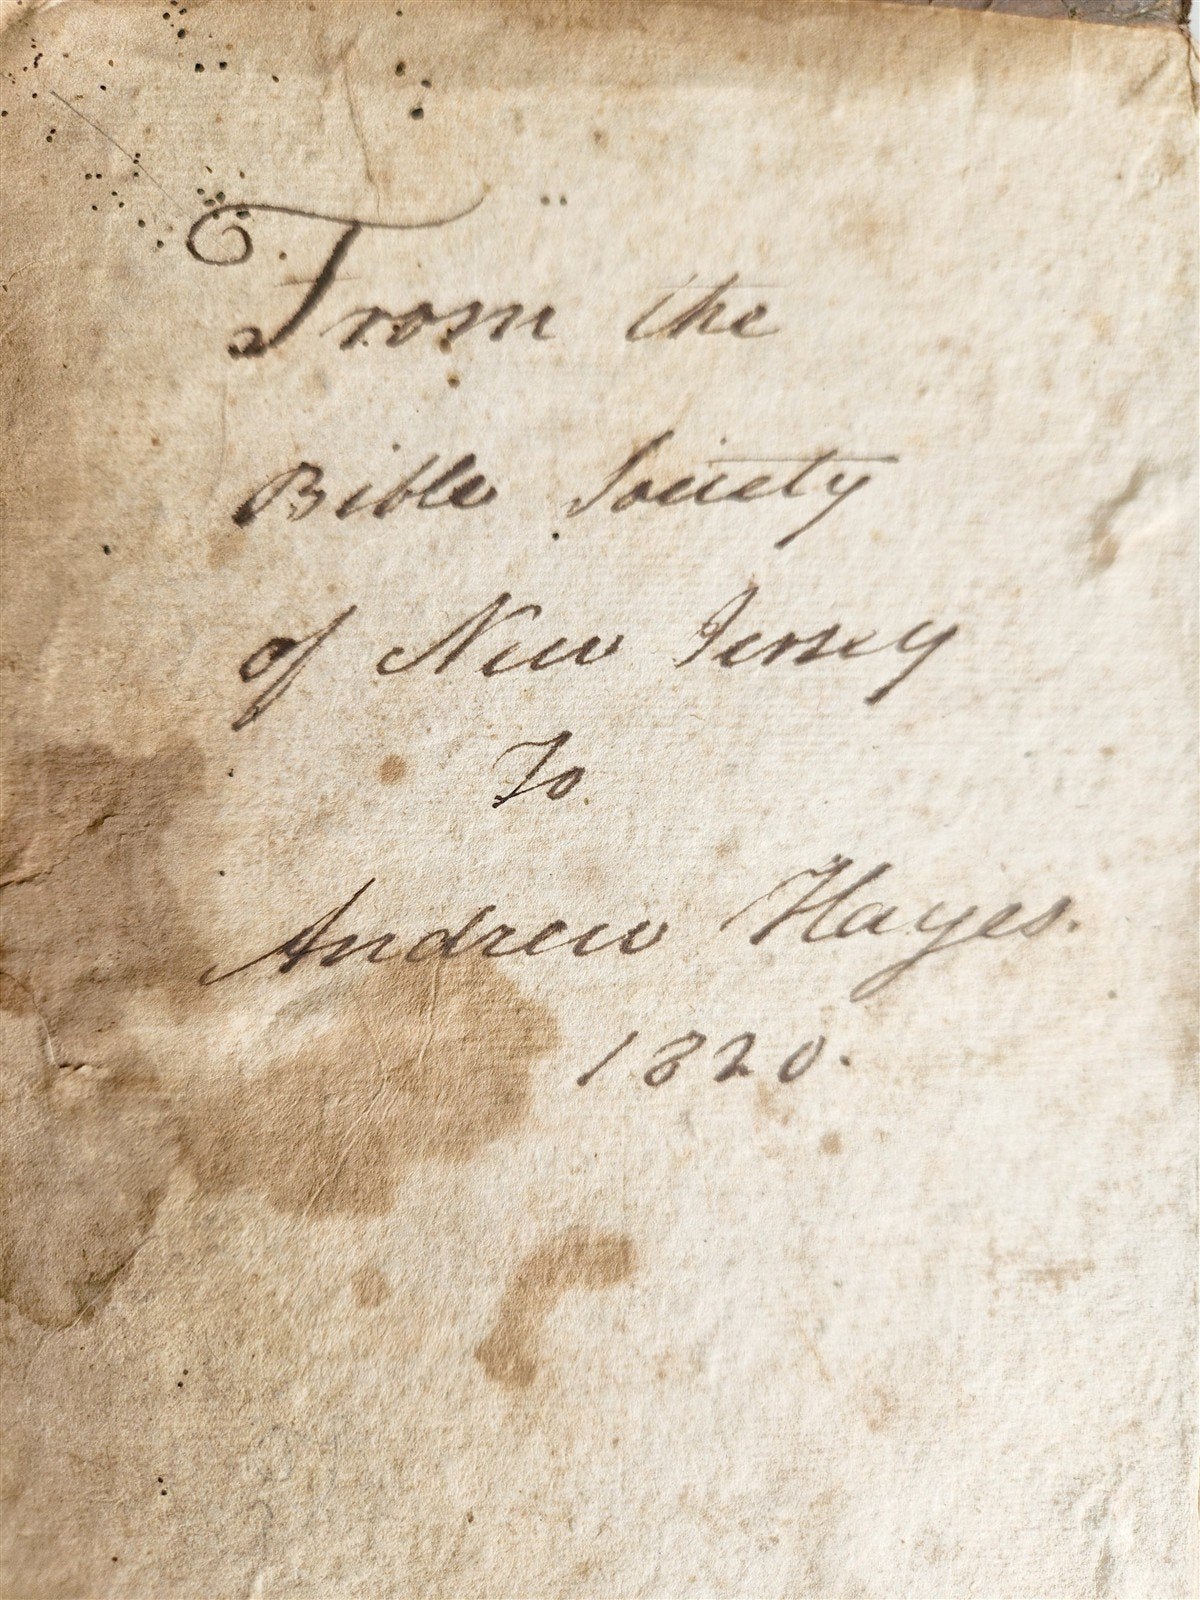 From the
Bible Society
of New Jersey
To
Andrew Hayes.
1820.